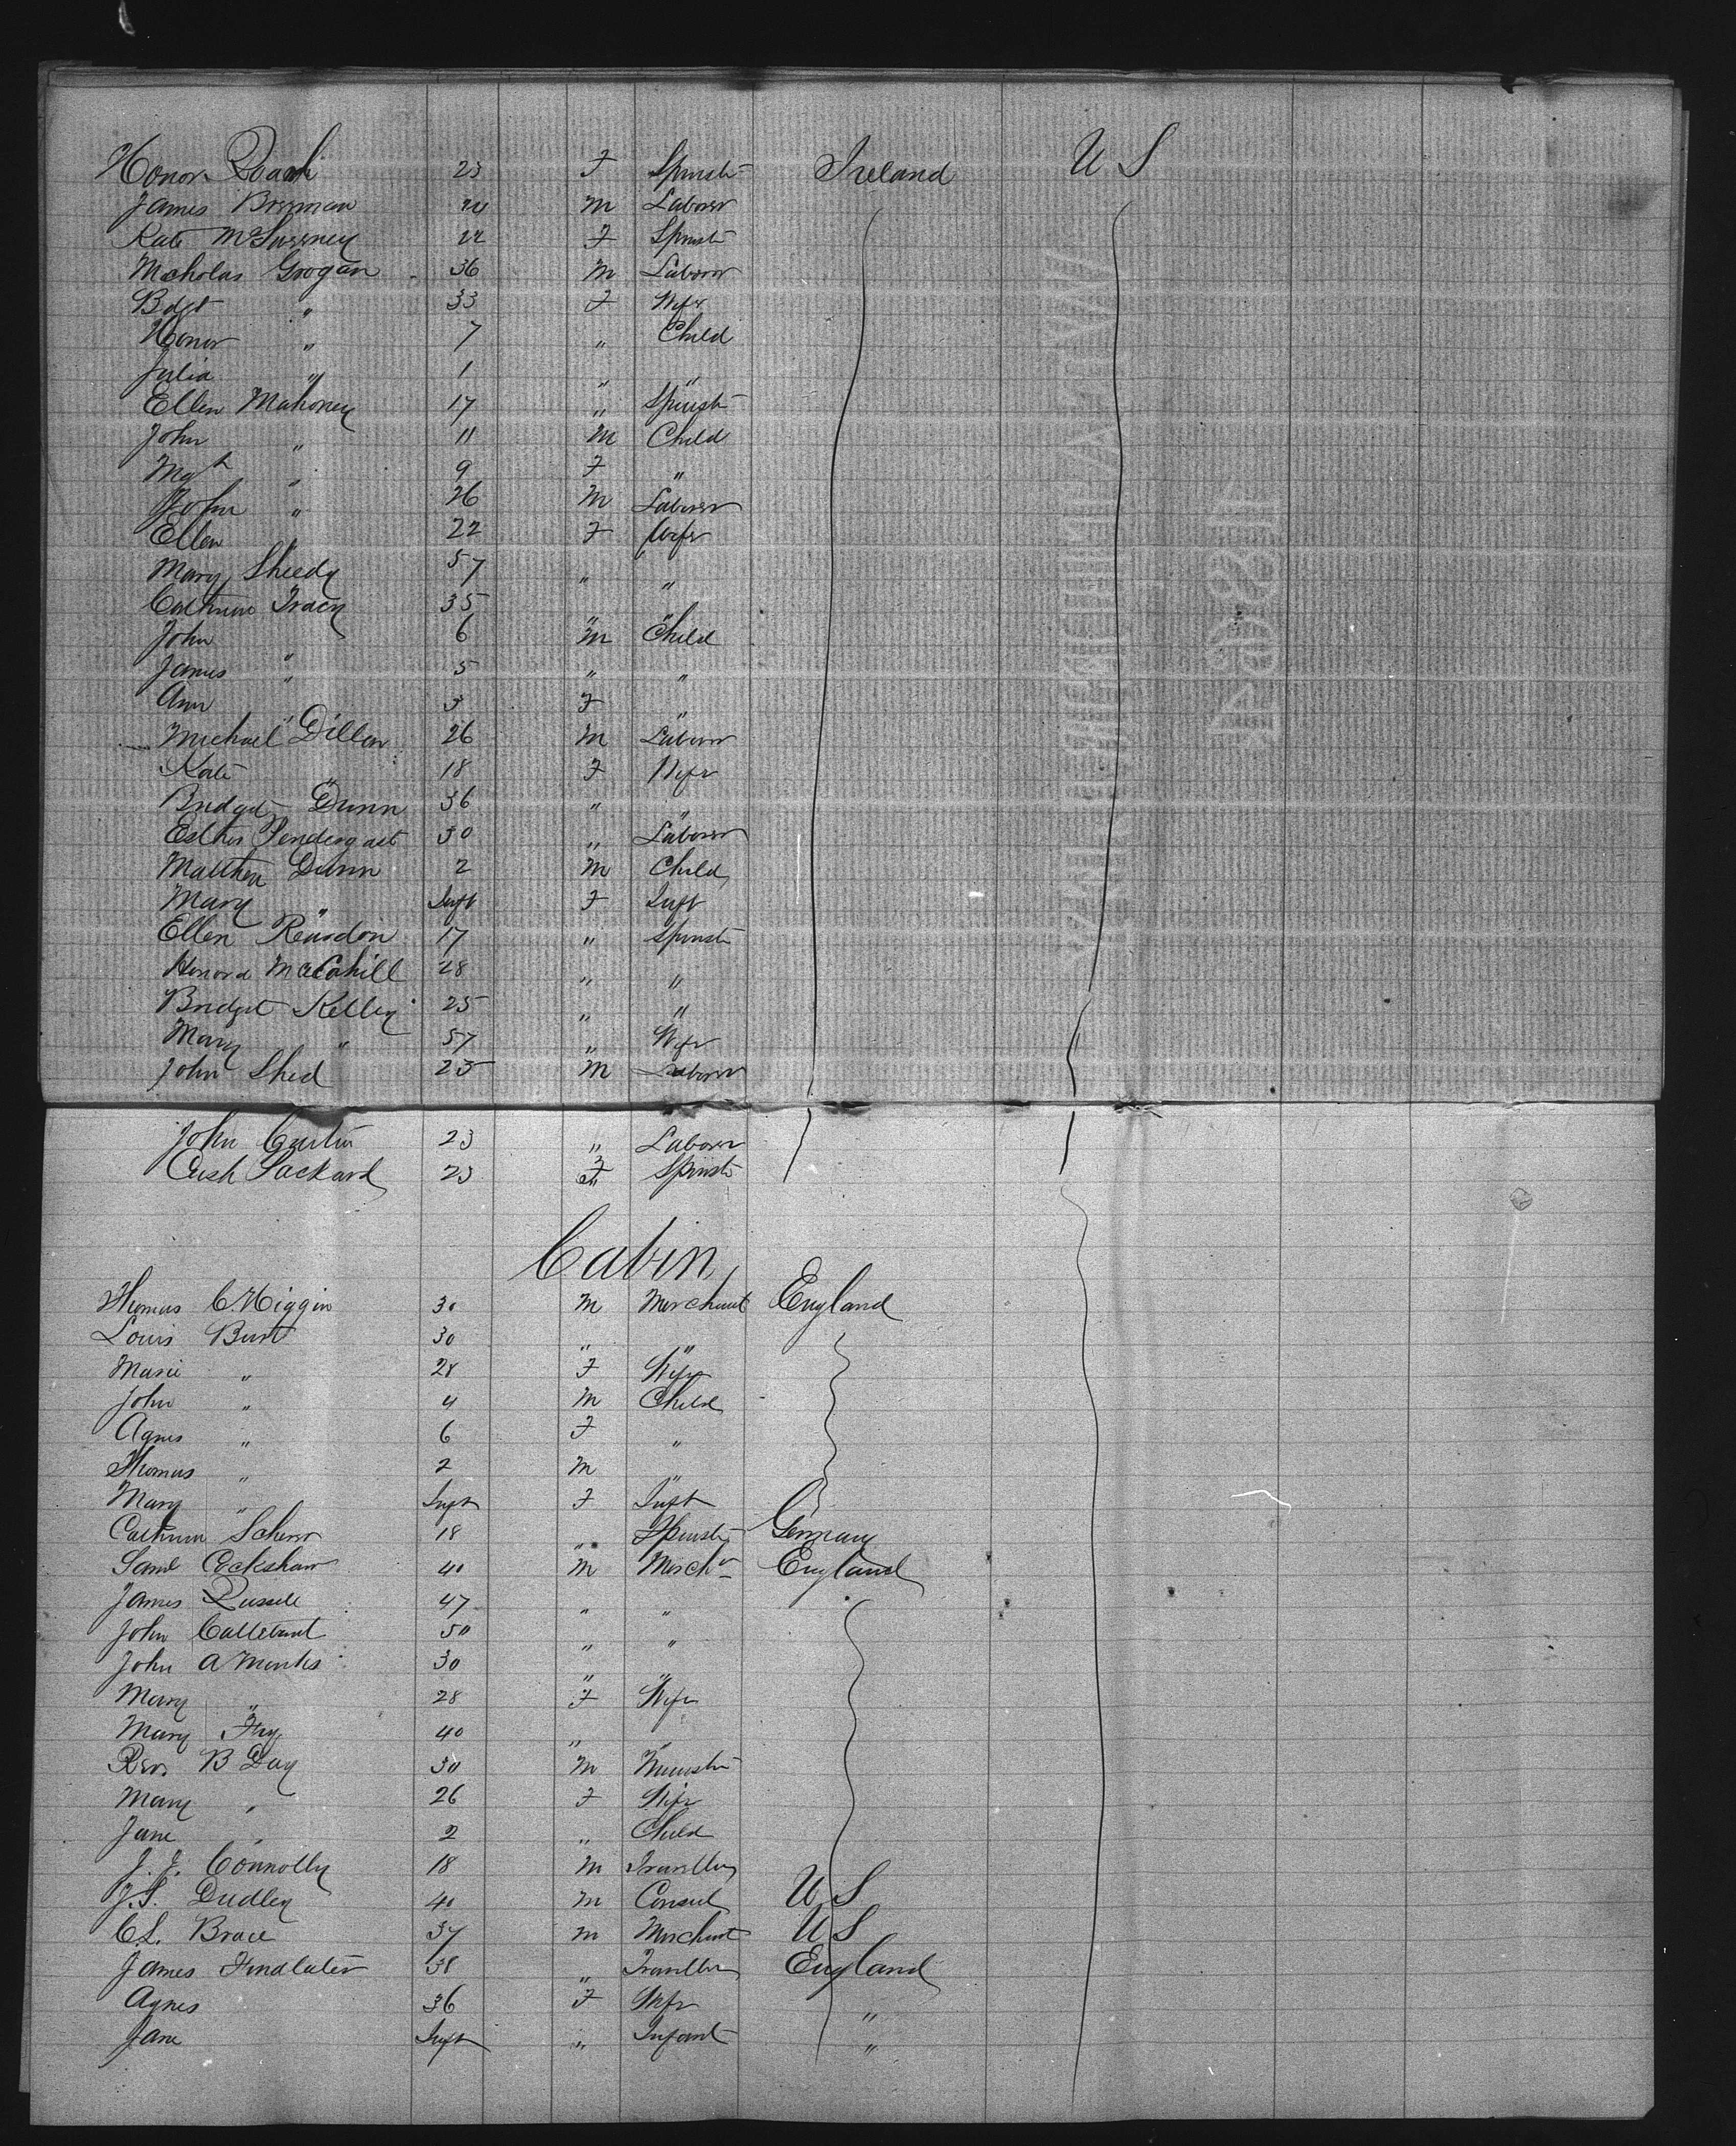 Honor 23 F Spinstr Ireland U S
James Brennan 24 M Laborer
Kate McSweeney 22 F Spinstr
Nicholas Grogan 36 M Laborer
Bdgt " 33 F Wife
Honor " 7 " Child
Julia " 1 " "
Ellen Mahoney 17 " Spinstr
John " 11 M Child
Mgt " 9 F "
John " 26 M Laborer
Ellen " 22 F Wife
Mary Sheedy 57 " "
Cathrine Tracy 35 " "
John " 6 M Child
James " 5 " "
Ann " 3 F "
Michael Dillon 26 M Laborer
Kate " 18 F Wife
Bridget Dunn 36 " "
Esther Pendergast 30 " Laborer
Matthew Dunn 2 M Child
Mary " Inft F Inft
Ellen Reardon 17 " Spinstr
Honora McCahill 28 " "
Bridget Kelley 25 " "
Mary " 57 " Wife
John Shed 25 M Laborer
John Curtin 23 " Laborer
Packard 23 F Spinstr
Cabin
Thomas C Higgin 30 M Merchant England
Louis Bust 30 " "
Marie " 28 F Wife
John " 4 M Child
Agnes " 6 F "
Thomas " 2 M "
Mary " Inft F Inft
Cathrine Scherer 18 " Spinstr Germany
Saml Cockshaw 40 M Mercht England
James Russell 47 " "
John 50 " "
John A Menks 30 " "
Mary " 28 F Wife
Mary Fry 40 " "
Rev B Day 30 M Minister
Mary " 26 F Wife
Jane " 2 " Child
J. J. Connolly 18 M Traveller
J.S. Dudley 40 M Consul U S
C.L. Brace 37 M Merchant U S
James Findlater 38 " Traveller England
Agnes 36 F Wife "
Jane Inft " Infant "